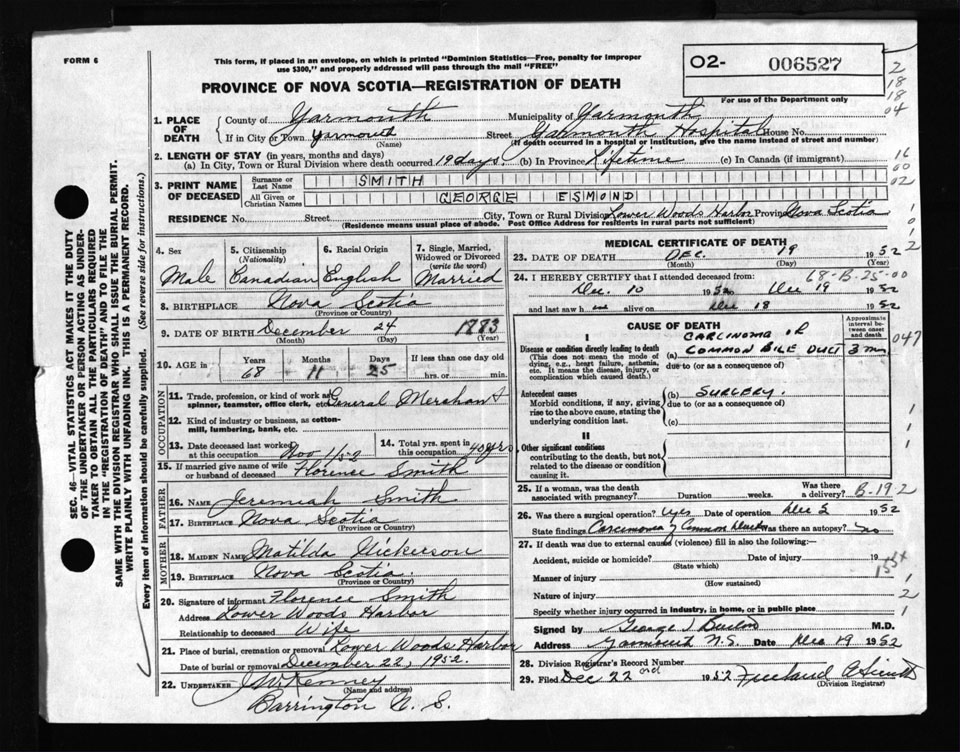 FORM 6
This form, if placed in an envelope, on which is printed "Dominion Statistics—Free, penalty for improper
use $300," and properly addressed will pass through the mail "FREE"
PROVINCE OF NOVA SCOTIA—REGISTRATION OF DEATH
O2- 006527
For use of the Department only
2
18
18
04
1. PLACE OF DEATH
County of Yarmouth Municipality of Yarmouth
If in City or Town Yarmouth Street Yarmouth Hospital House No.
(Name) (If death occurred in a hospital or institution, give the name instead of street and number)
2. LENGTH OF STAY (in years, months and days)
(a) In City, Town or Rural Division where death occurred 19 days (b) In Province Lifetime (c) In Canada (if immigrant)
16
60
02
3. PRINT NAME OF DECEASED
Surname or Last Name SMITH
All Given or Christian Names GEORGE ESMOND
RESIDENCE No. Street City, Town or Rural Division Lower Woods Harbor Province Nova Scotia
(Residence means usual place of abode. Post Office Address for residents in rural parts not sufficient)
4. Sex Male
5. Citizenship (Nationality) Canadian
6. Racial Origin English
7. Single, Married, Widowed or Divorced (write the word) Married
8. BIRTHPLACE Nova Scotia
(Province or Country)
9. DATE OF BIRTH December 24 1883
(Month) (Day) (Year)
10. AGE in Years Months Days If less than one day old
68 11 25 hrs. or min.
OCCUPATION
11. Trade, profession, or kind of work as spinner, teamster, office clerk, etc. General Merchant
12. Kind of industry or business, as cotton-mill, lumbering, bank, etc.
13. Date deceased last worked at this occupation Nov 1/52
14. Total yrs. spent in this occupation 40 yrs.
15. If married give name of wife or husband of deceased Florence Smith
FATHER
16. NAME Jeremiah Smith
17. BIRTHPLACE Nova Scotia
(Province or Country)
MOTHER
18. MAIDEN NAME Matilda Nickerson
19. BIRTHPLACE Nova Scotia.
(Province or Country)
20. Signature of informant Florence Smith
Address Lower Woods Harbor
Relationship to deceased Wife
21. Place of burial, cremation or removal Lower Woods Harbor
Date of burial or removal December 22, 1952.
22. UNDERTAKER J McKenney
(Name and address)
Barrington N. S.
MEDICAL CERTIFICATE OF DEATH
23. DATE OF DEATH Dec. 19 1952
(Month) (Day) (Year)
24. I HEREBY CERTIFY that I attended deceased from: 68-B-25-00
Dec. 10 1952 Dec 19 1952
and last saw h im alive on Dec 18 1952
CAUSE OF DEATH
Approximate interval between onset and death
I
Disease or condition directly leading to death
(This does not mean the mode of dying, e.g., heart failure, asthenia, etc. It means the disease, injury, or complication which caused death.)
(a) CARCINOMA OF COMMON BILE DUCT 3 mos
due to (or as a consequence of)
047
Antecedent causes
Morbid conditions, if any, giving rise to the above cause, stating the underlying condition last.
(b) SURGERY.
due to (or as a consequence of)
(c)
II
Other significant conditions
contributing to the death, but not related to the disease or condition causing it.
25. If a woman, was the death associated with pregnancy? Duration weeks. Was there a delivery? B-19 2
26. Was there a surgical operation? yes Date of operation Dec 5 1952
State findings Carcinoma of Common Duct Was there an autopsy? No
27. If death was due to external causes (violence) fill in also the following:
Accident, suicide or homicide? Date of injury 19
(State which)
Manner of injury
(How sustained)
Nature of injury
Specify whether injury occurred in industry, in home, or in public place
Signed by George M.D.
Address Yarmouth N.S. Date Dec 19 1952
28. Division Registrar's Record Number
29. Filed Dec 22nd 1952
(Division Registrar)
SEC. 46—VITAL STATISTICS ACT MAKES IT THE DUTY
OF THE UNDERTAKER OR PERSON ACTING AS UNDERTAKER
TO OBTAIN ALL THE PARTICULARS REQUIRED
IN THE "REGISTRATION OF DEATH" AND TO FILE THE
SAME WITH THE DIVISION REGISTRAR WHO SHALL ISSUE THE BURIAL PERMIT.
WRITE PLAINLY WITH UNFADING INK. THIS IS A PERMANENT RECORD.
Every item of information should be carefully supplied. (See reverse side for instructions.)